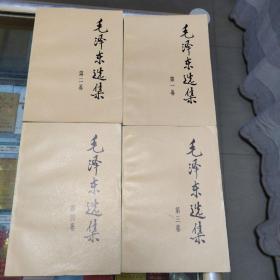 毛泽东选集
第二卷
毛泽东选集
第一卷
毛泽东选集
第四卷
毛泽东选集
第三卷